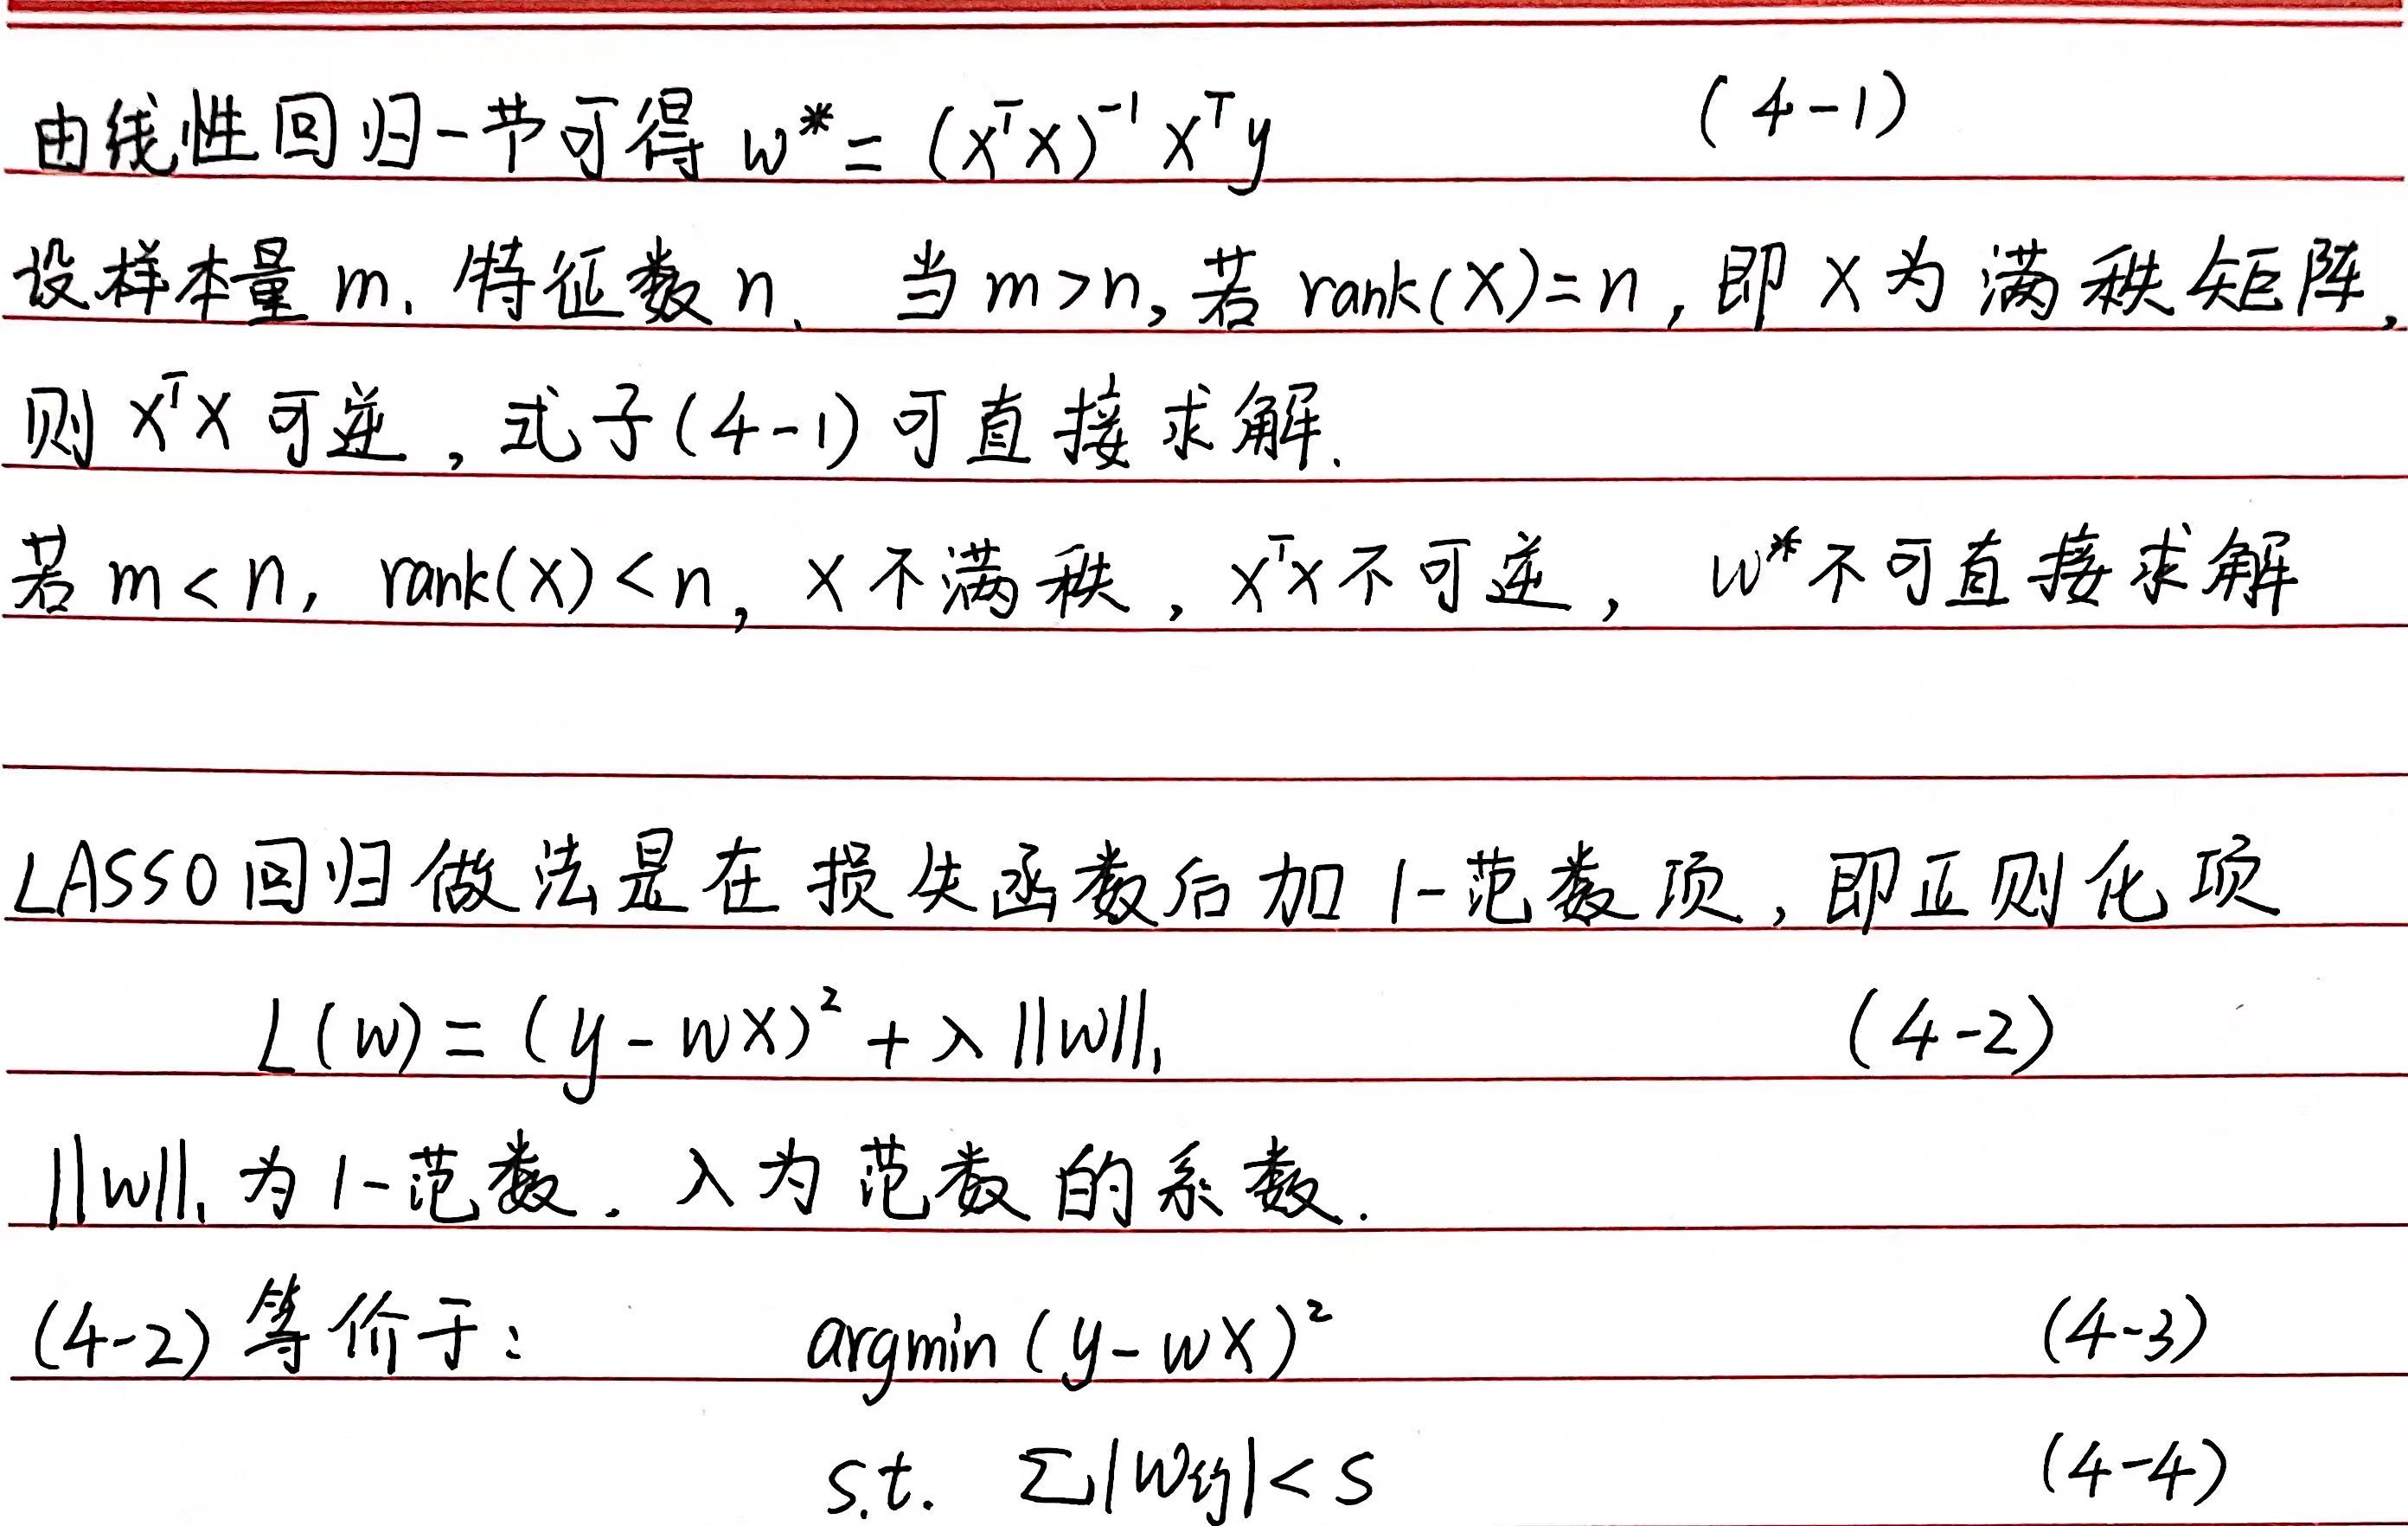 由线性回归一节可得 w* = (XᵀX)⁻¹Xᵀy (4-1)
设样本量 m. 特征数 n. 当 m>n, 若 rank(X)=n, 即 X 为满秩矩阵,
则 XᵀX 可逆, 式子(4-1)可直接求解.
若 m<n, rank(X)<n, X不满秩, XᵀX不可逆, w*不可直接求解
LASSO回归做法是在损失函数后加1-范数项, 即正则化项
L(w) = (y-wX)² + λ||w||₁ (4-2)
||w||₁ 为1-范数. λ为范数的系数.
(4-2) 等价于: argmin (y-wX)² (4-3)
s.t. Σ|wij|<s (4-4)